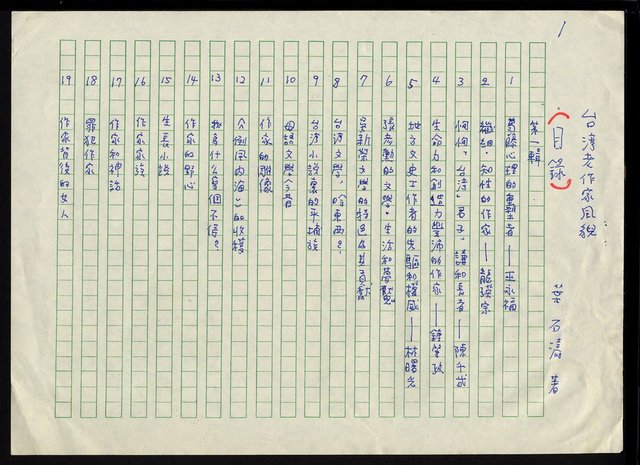 1
台湾老作家風貌
葉石濤 著
(目錄)
第一輯
1 葛藤心理的奮鬥者——巫永福
2 纖細、知性的作家——龍瑛宗
3 恂恂「台湾」君子，謙和長者——陳千武
4 生命力和創造力豐沛的作家——鍾肇政
5 地方文史工作者的先驅和權威——林曙光
6 張彥勳的文學、生活和貢獻
7 吳新榮文學的特色及其貢献
8 台湾文學，啥東西？
9 台湾小說裏的平埔族
10 母語文學今昔
11 作家的雕像
12 《倒風內海》的收穫
13 物為什么拿個不停？
14 作家的野心
15 生長小說
16 作家家族
17 作家和神話
18 罪犯作家
19 作家背後的女人